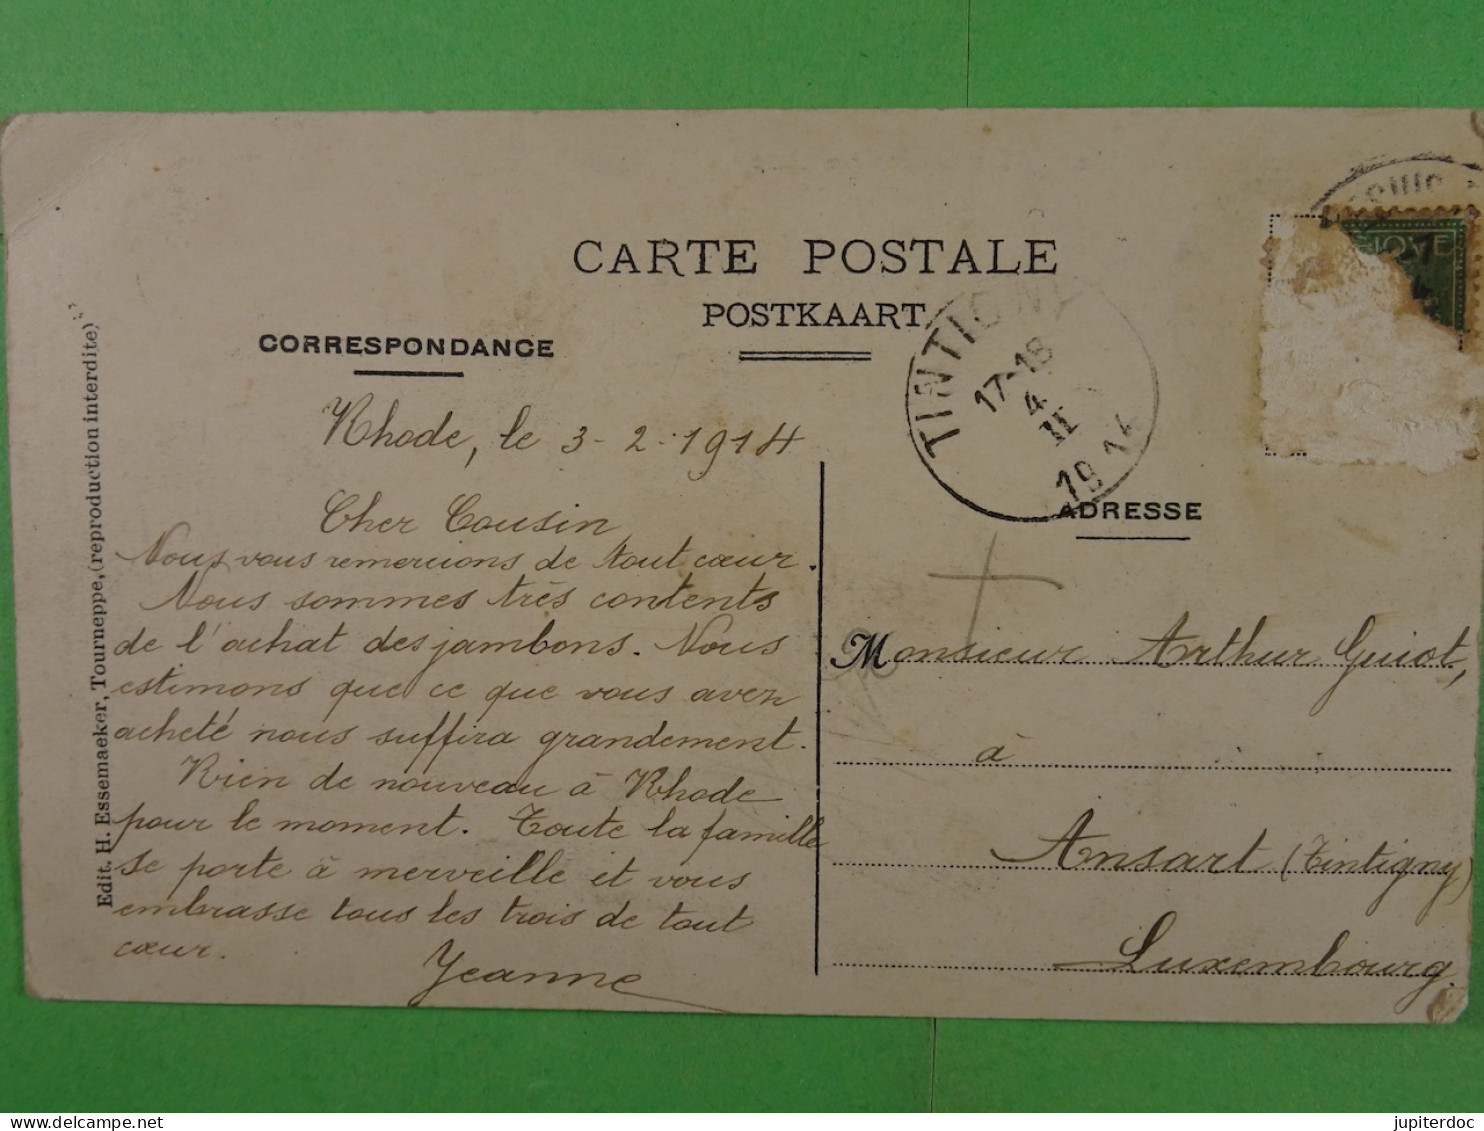 CARTE POSTALE
POSTKAART
CORRESPONDANCE
Rhode, le 3-2-1914
Cher Cousin
Nous vous remercions de tout cœur.
Nous sommes très contents
de l'achat des jambons. Nous
estimons que ce que vous avez
acheté nous suffira grandement.
Rien de nouveau à Rhode
pour le moment. Toute la famille
se porte à merveille et vous
embrasse tous les trois de tout
cœur.
Jeanne
Edit. H. Essemaeker, Tourneppe,(reproduction interdite)
TINTIGNY
17-18
4
II
1914
ADRESSE
Monsieur Arthur Guiot,
à
Ansart (Tintigny)
Luxembourg.
jupiterdoc
delcampe.net